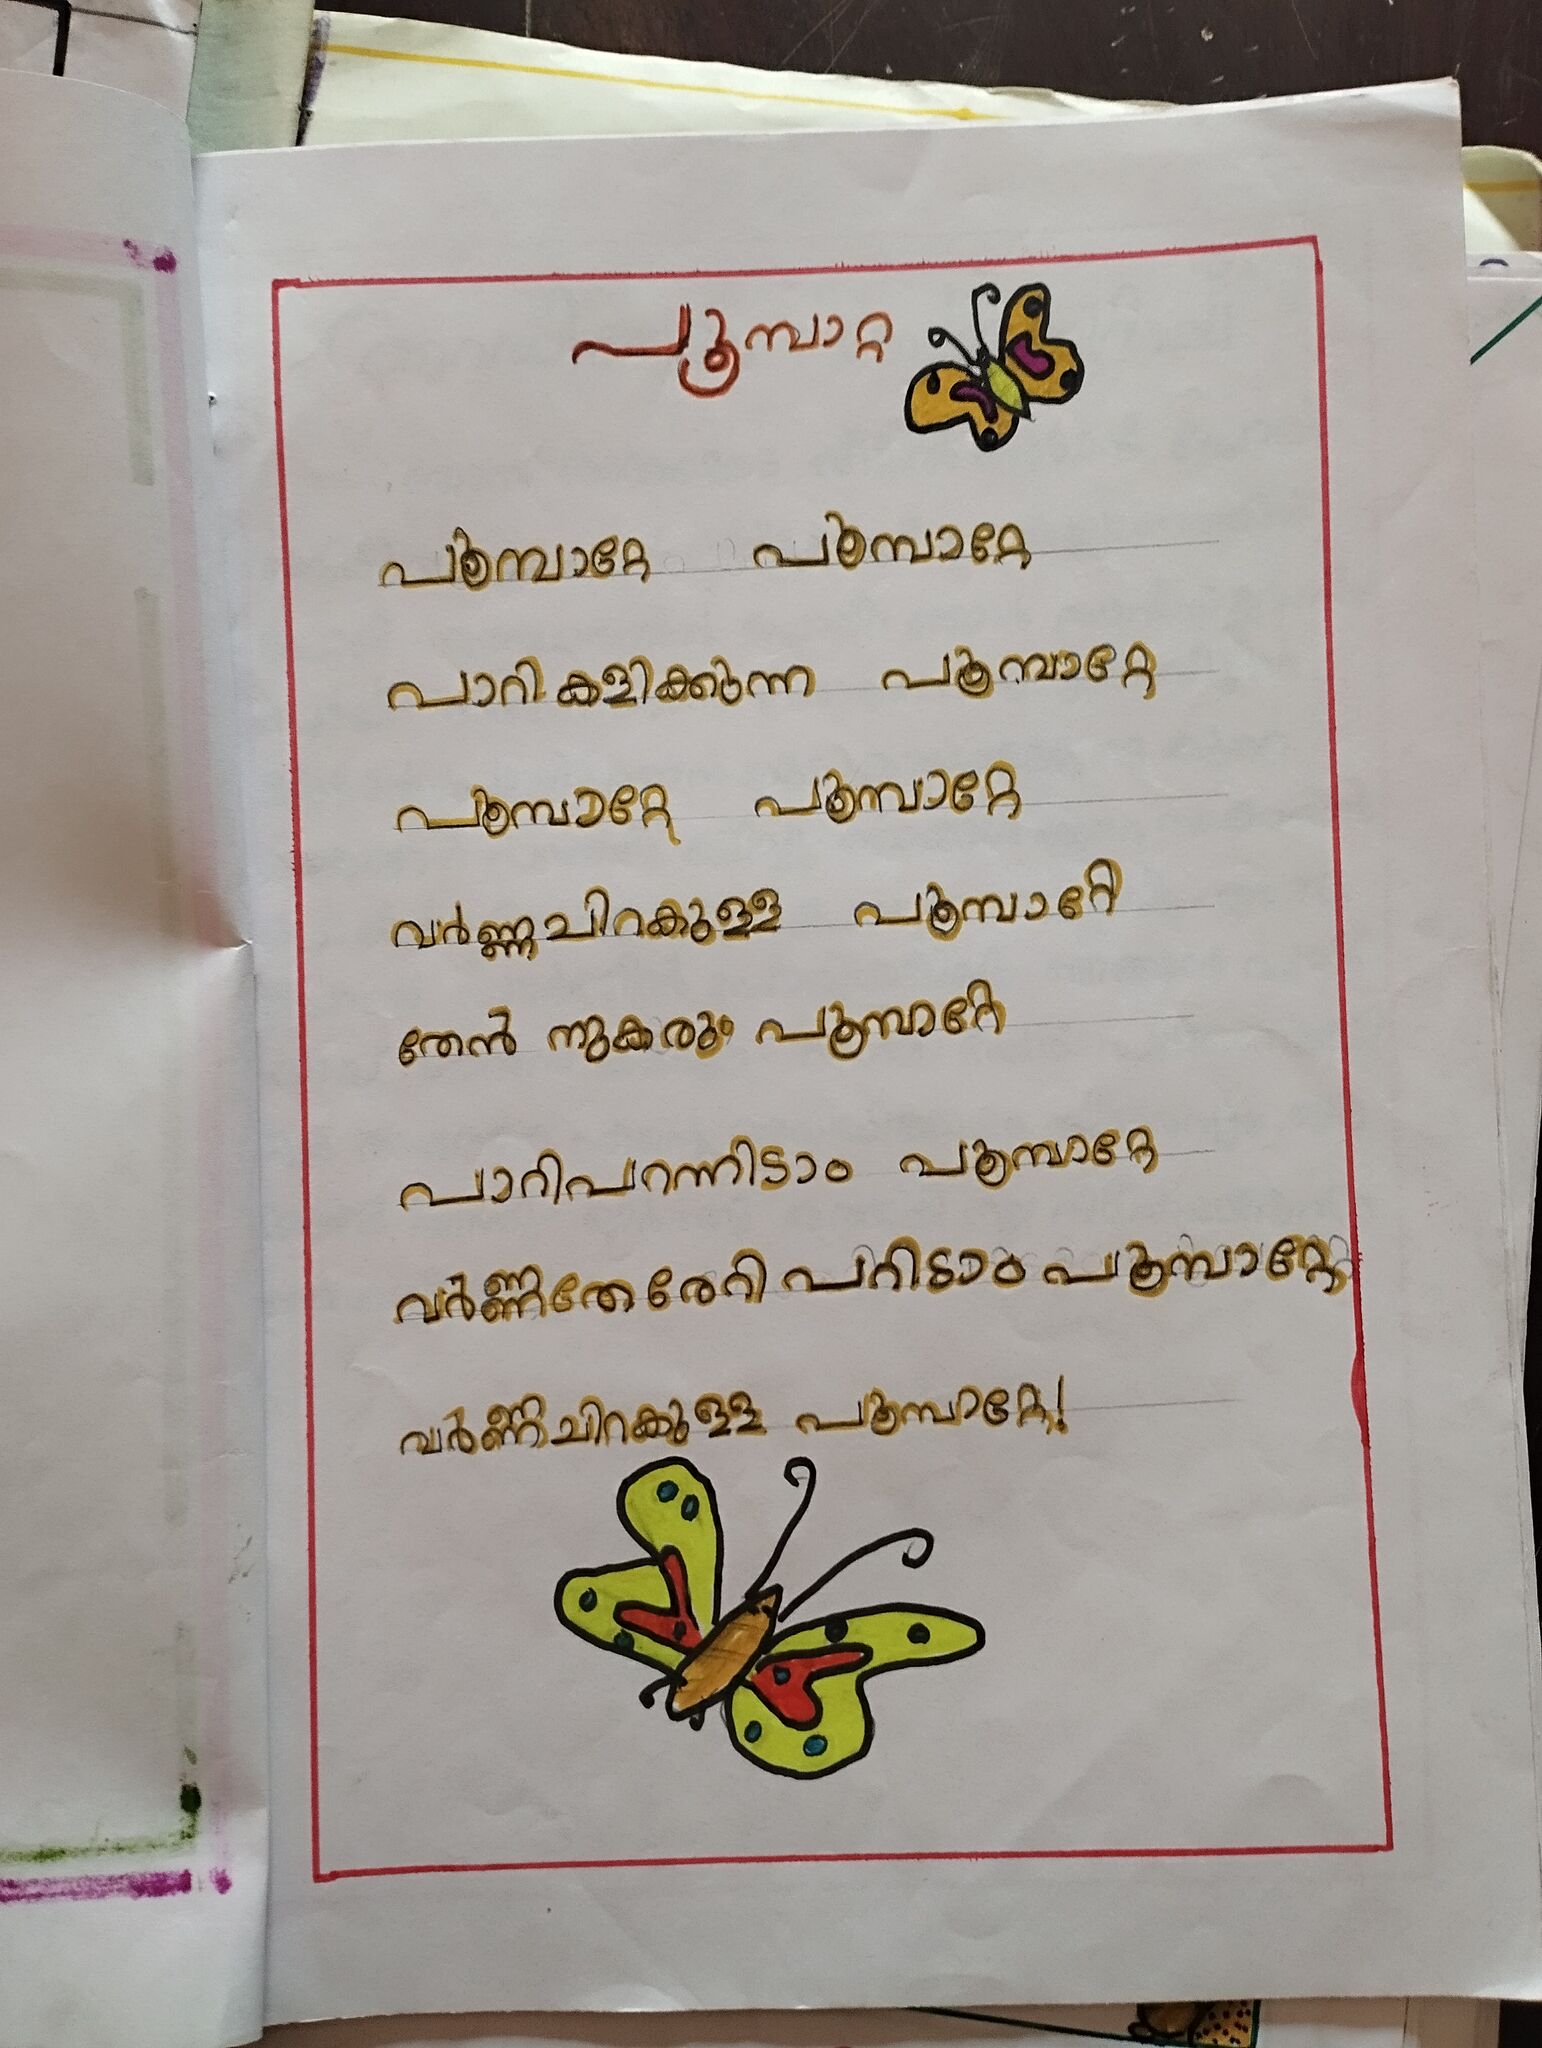 പൂമ്പാറ്റ
പൂമ്പാറ്റേ പൂമ്പാറ്റേ
പാറി കളിക്കുന്ന പൂമ്പാറ്റേ
പൂമ്പാറ്റേ പൂമ്പാറ്റേ
വർണ്ണചിറകുള്ള പൂമ്പാറ്റേ
തേൻ നുകരും പൂമ്പാറ്റേ
പാറിപറന്നിടാം പൂമ്പാറ്റേ
വർണ്ണതേരേറി പറിടാം പൂമ്പാറ്റേ
വർണ്ണചിറകുള്ള പൂമ്പാറ്റേ!